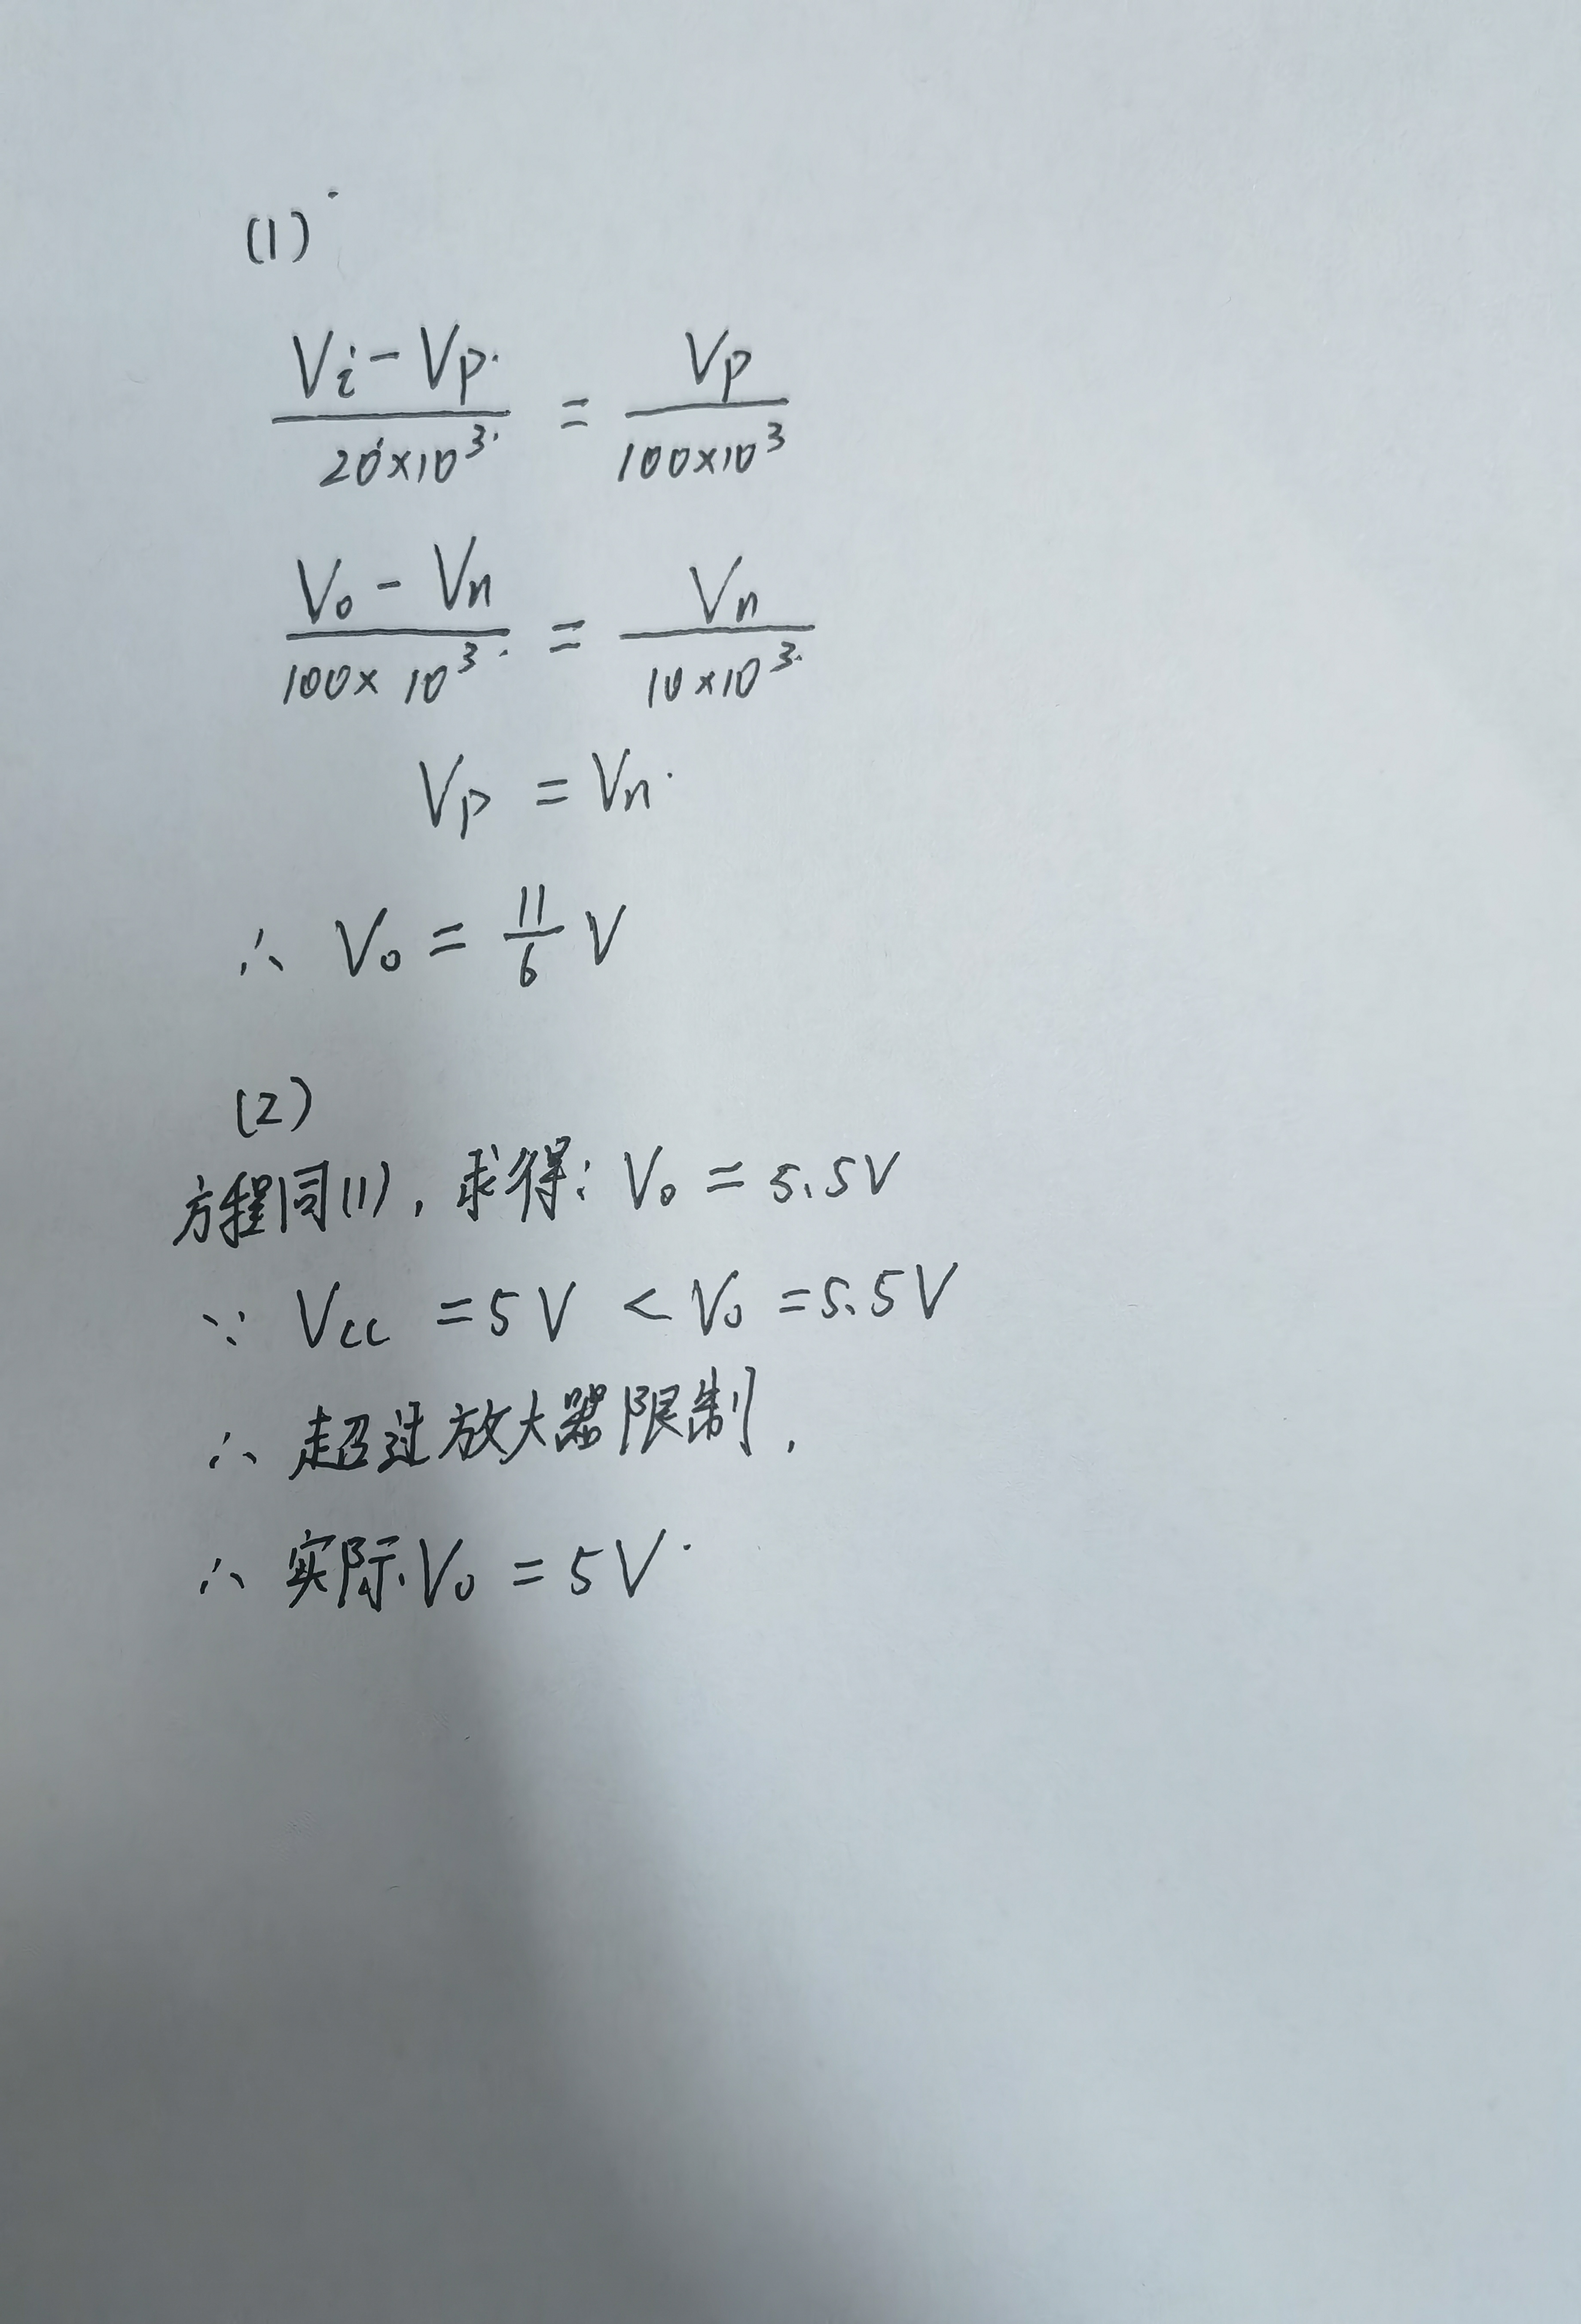 (1)
Vi - Vp / 20×10³ = Vp / 100×10³
Vo - Vn / 100×10³ = Vn / 10×10³
Vp = Vn
∴ Vo = 11/6 V
(2)
方程同(1), 求得: Vo = 5.5V
∵ Vcc = 5V < Vo = 5.5V
∴ 超过放大器限制,
∴ 实际Vo = 5V